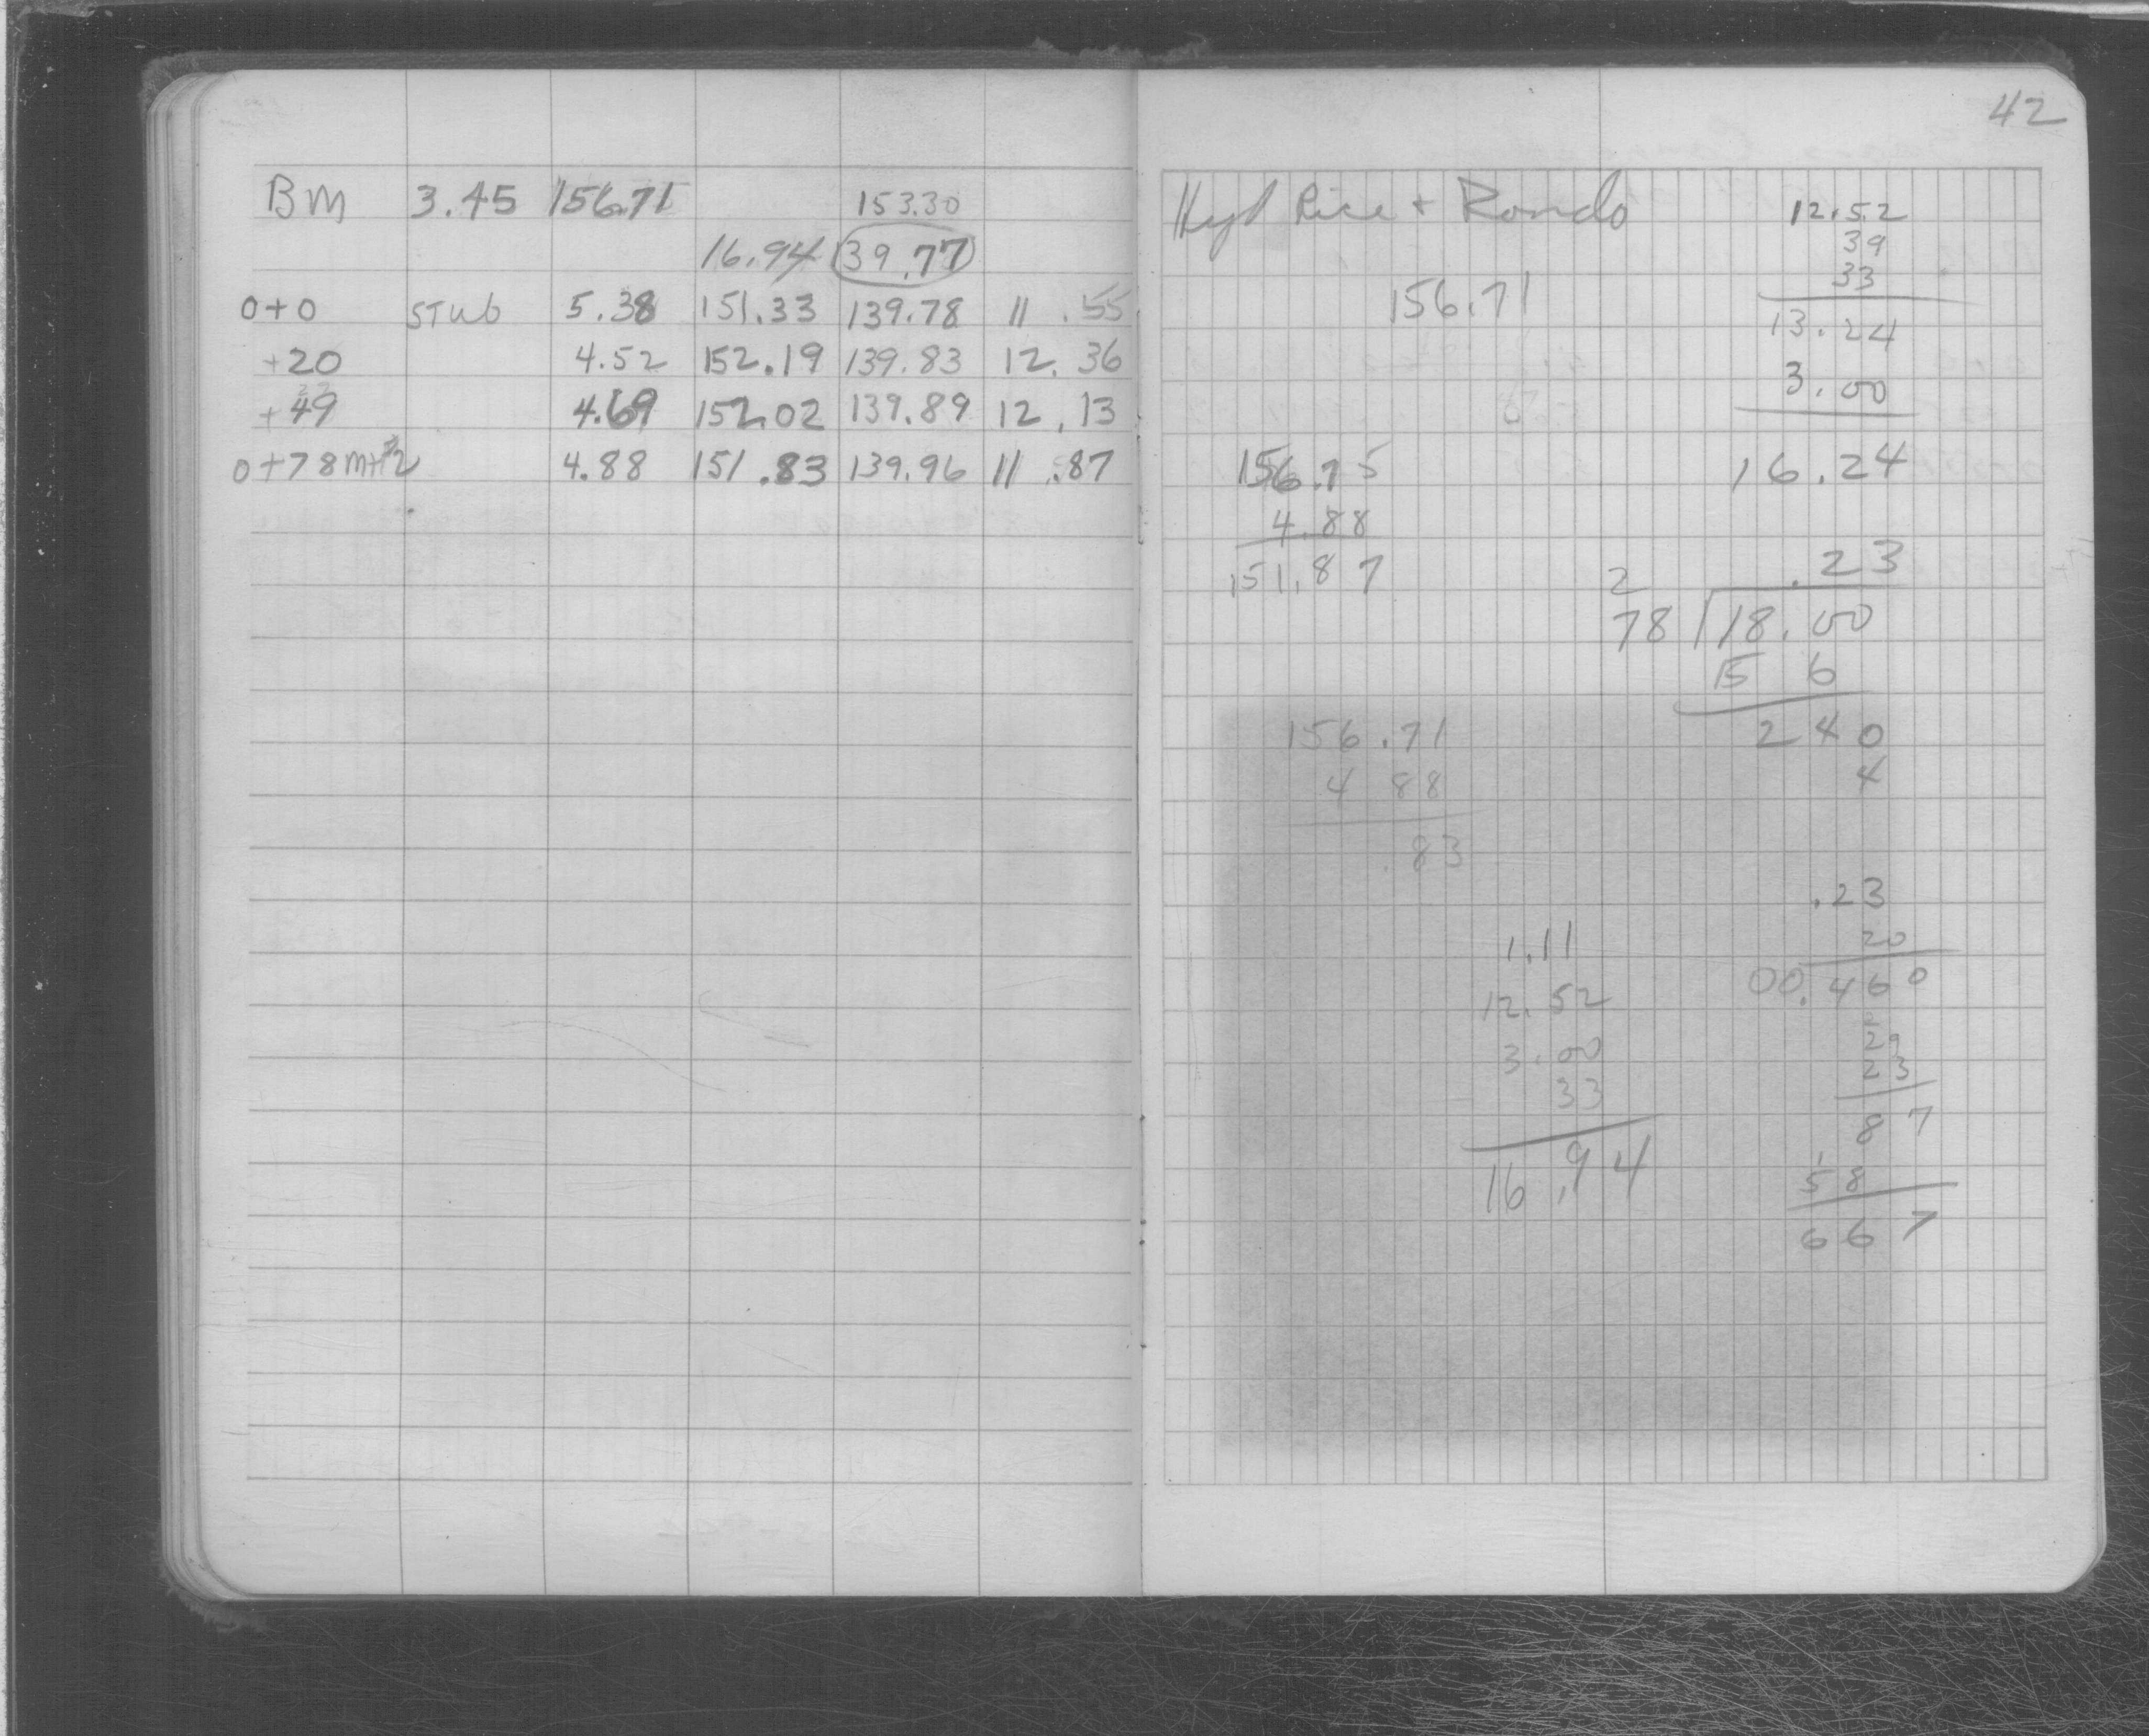 42
BM 3.45 156.71 153.30
16.94 139.77
0+0 STub 5.38 151.33 139.78 11.55
+20 4.52 152.19 139.83 12.36
+49 4.69 152.02 139.89 12.13
0+78 MH#2 4.88 151.83 139.96 11.87
Hyd Rice + Rondo
156.71
156.75
4.88
151.87
156.71
4 88
.83
1.11
12.52
3.00
33
16.94
12.52
39
33
13.24
3.00
16.24
2 .23
78 18.00
15 6
2 40
4
.23
20
00.460
29
23
87
58
667